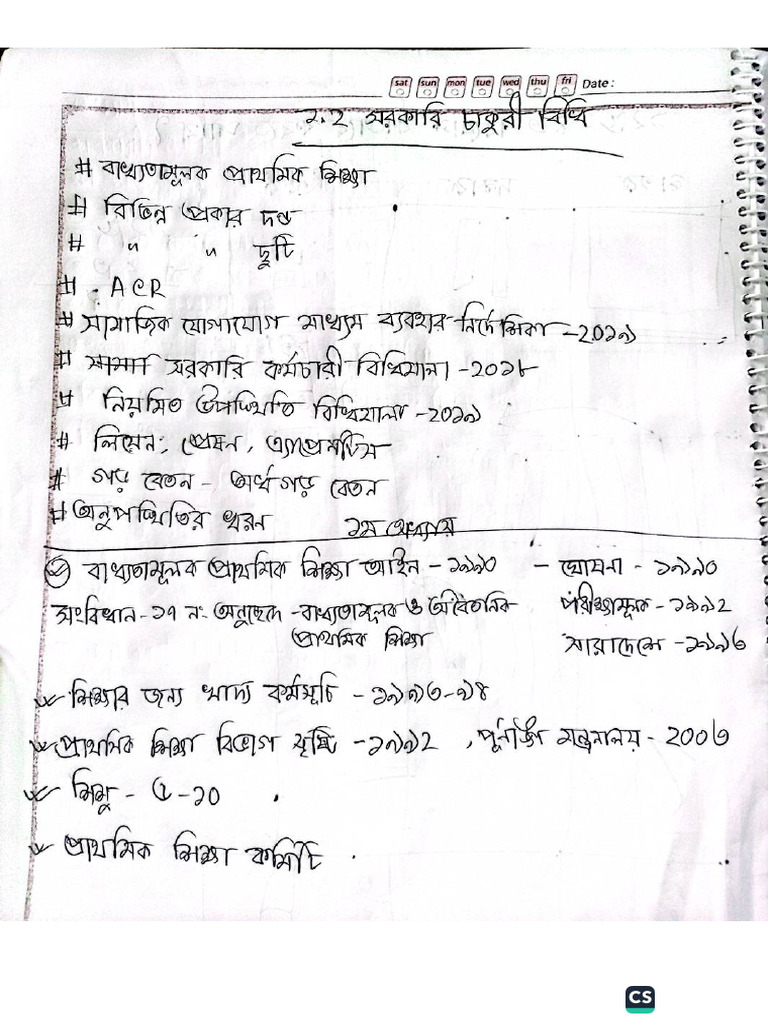 sat sun mon tue wed thu fri Date:
২.২ সরকারি চাকুরী বিধি
# বাধ্যতামূলক প্রাথমিক শিক্ষা
# বিভিন্ন প্রকার দন্ড
# " " ছুটি
# . ACR
# সামাজিক যোগাযোগ মাধ্যম ব্যবহার নির্দেশিকা -২০১৯
# সরকারি কর্মচারী বিধিমালা -২০১৮
# নিয়মিত উপস্থিতি বিধিমালা -২০১৯
# লিয়েন, প্রেষন,
# গড় বেতন - অর্ধগড় বেতন
# অনুপস্থিতির ধরন ১ম অধ্যায়
বাধ্যতামূলক প্রাথমিক শিক্ষা আইন - ১৯৯০ - ঘোষনা - ১৯৯০
সংবিধান -১৭ নং অনুচ্ছেদ -বাধ্যতামূলক ও অবৈতনিক পরীক্ষামূলক -১৯৯২
প্রাথমিক শিক্ষা সারাদেশে -১৯৯৩
শিক্ষার জন্য খাদ্য কর্মসূচি - ১৯৯৩-৯৪
প্রাথমিক শিক্ষা বিভাগ সৃষ্টি -১৯৯২ , পূর্নাঙ্গ মন্ত্রনালয় - ২০০৩
শিশু - ৬-১০ .
প্রাথমিক শিক্ষা কমিটি .
CS